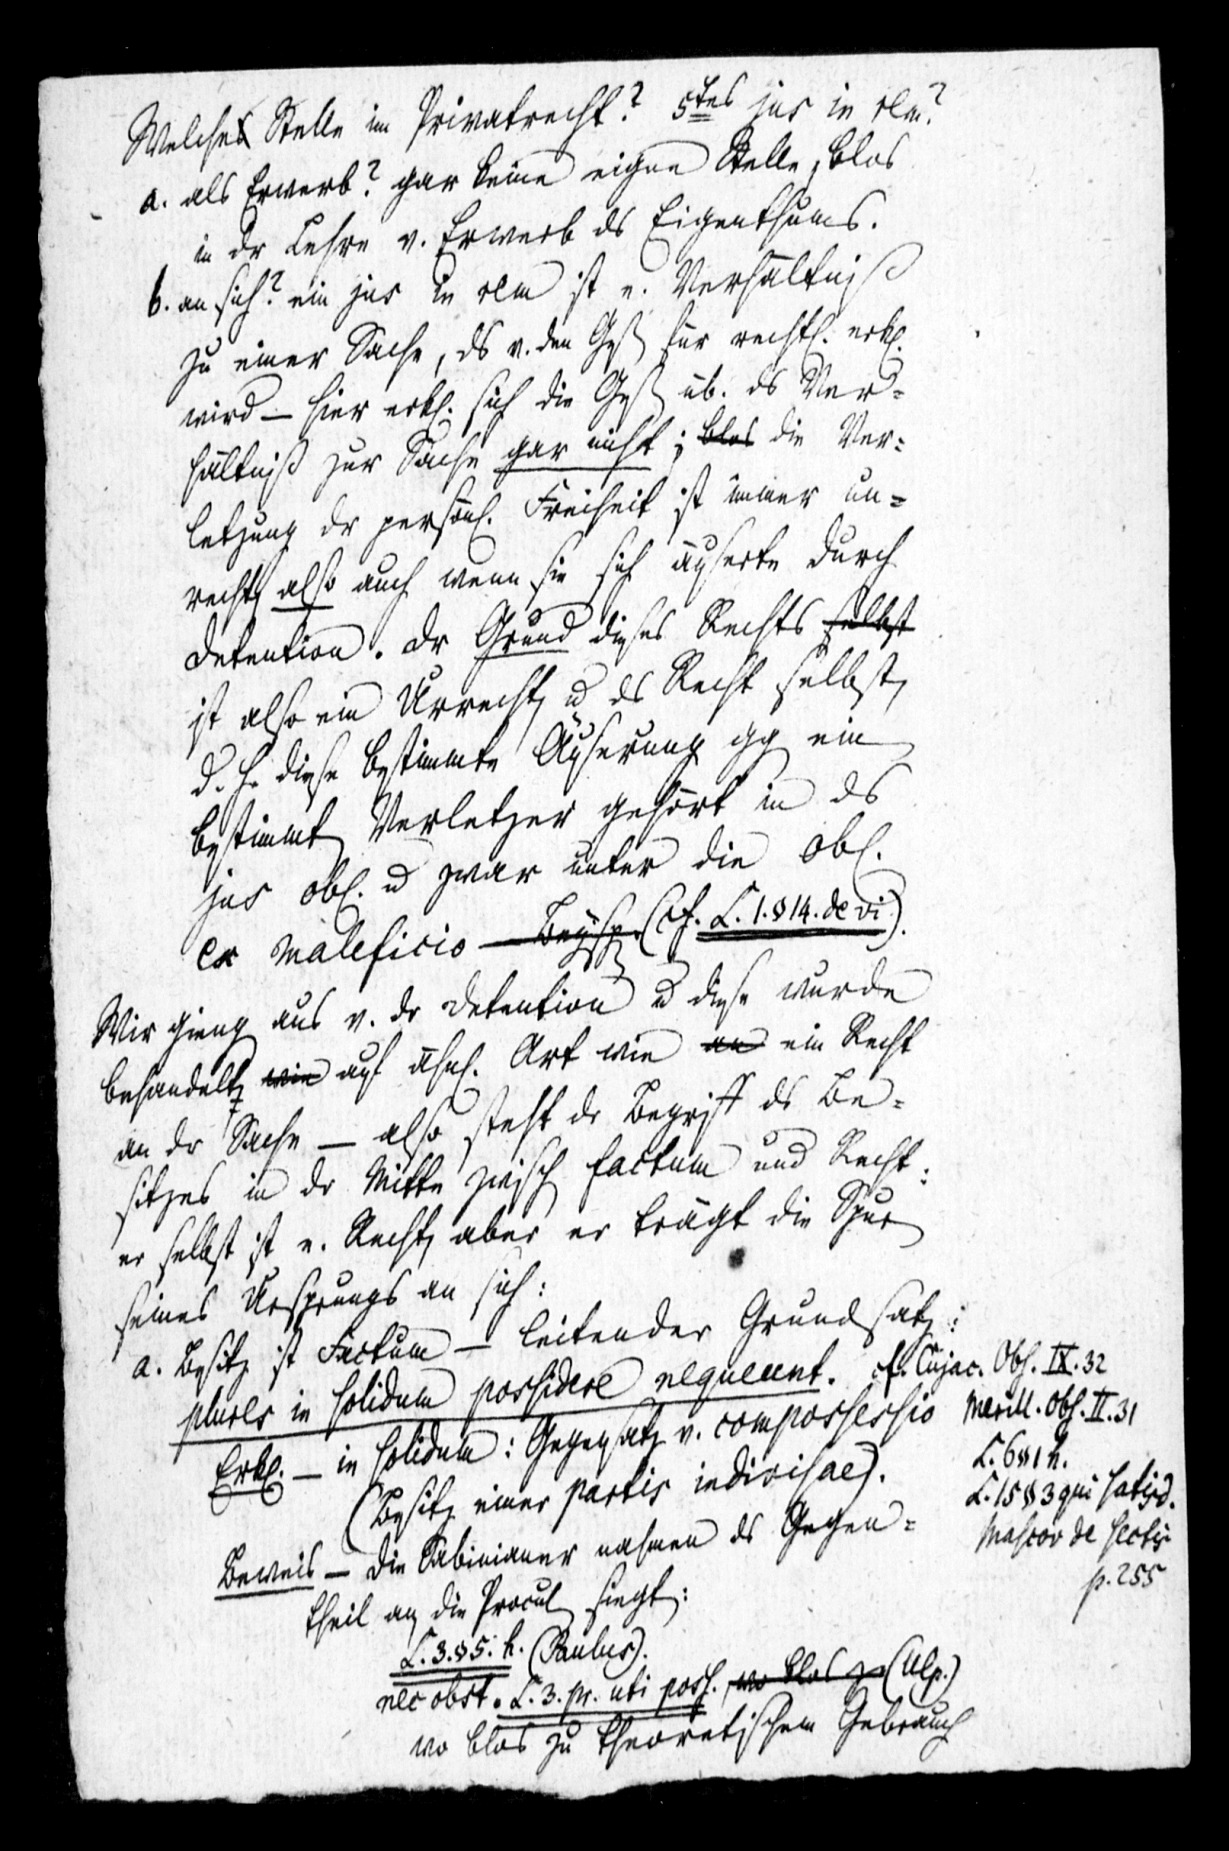 Welches Stelle im Privatrecht? 5tes jus in rem?
a. als Erwerb? gar keine eigne Stelle, blos
in dr Lehre v. Erwerb ds Eigenthums.
b. an sich? ein jus in rem ist e. Verhältniß
zu einer Sache, ds v. den Gesetz für rechtl. erkl.
wird – hier erkl. sich die Gesetz üb. ds Ver=
hältniß zur Sache gar nicht; blos die Ver=
letzung dr persönl. Freiheit ist immer un=
recht, also auch wenn sie sich äuserte durch
Detention. Dr Grund dieses Rechts selbst
ist also ein Urrecht, u ds Recht selbst,
d. h. diese bestimmte Äuserung gg ein
bestimmt Verletzer gehört in ds
jus obl. u zwar unter die obl.
ex maleficio – Beysp. (cf. L. 1. § 14. de vi).
Wir gieng aus v. dr Detention u diese wurde
behandelt, wie auf ähnl. Art wie an ein Recht
an dr Sache – also steht dr Begriff ds Be=
sitzes in dr Mitte zwisch factum und Recht:
er selbst ist e. Recht, aber er trägt die Spur
seines Ursprungs an sich:
a. Besitz ist Factum – leitender Grundsatz:
plures in solidum possidere nequeunt. cf. Cujac. Obs. IX. 32
Merill. Obs. II. 31
L. 6 § 1 h.
L. 15 § 3 qui satisd.
Mascov de sectis
p. 255
Erkl. – in solidum: Gegensatz v. compossessio
(Besitz einer partis indivisae).
Beweis – die Sabinianer nahmen ds Gegen=
theil an, die Procul, siegt:
L. 3. § 5. h. (Paulus).
nec obst. L. 3. pr. uti poss. wo blos z (Ulp.)
wo blos zu theoretischem Gebrauch